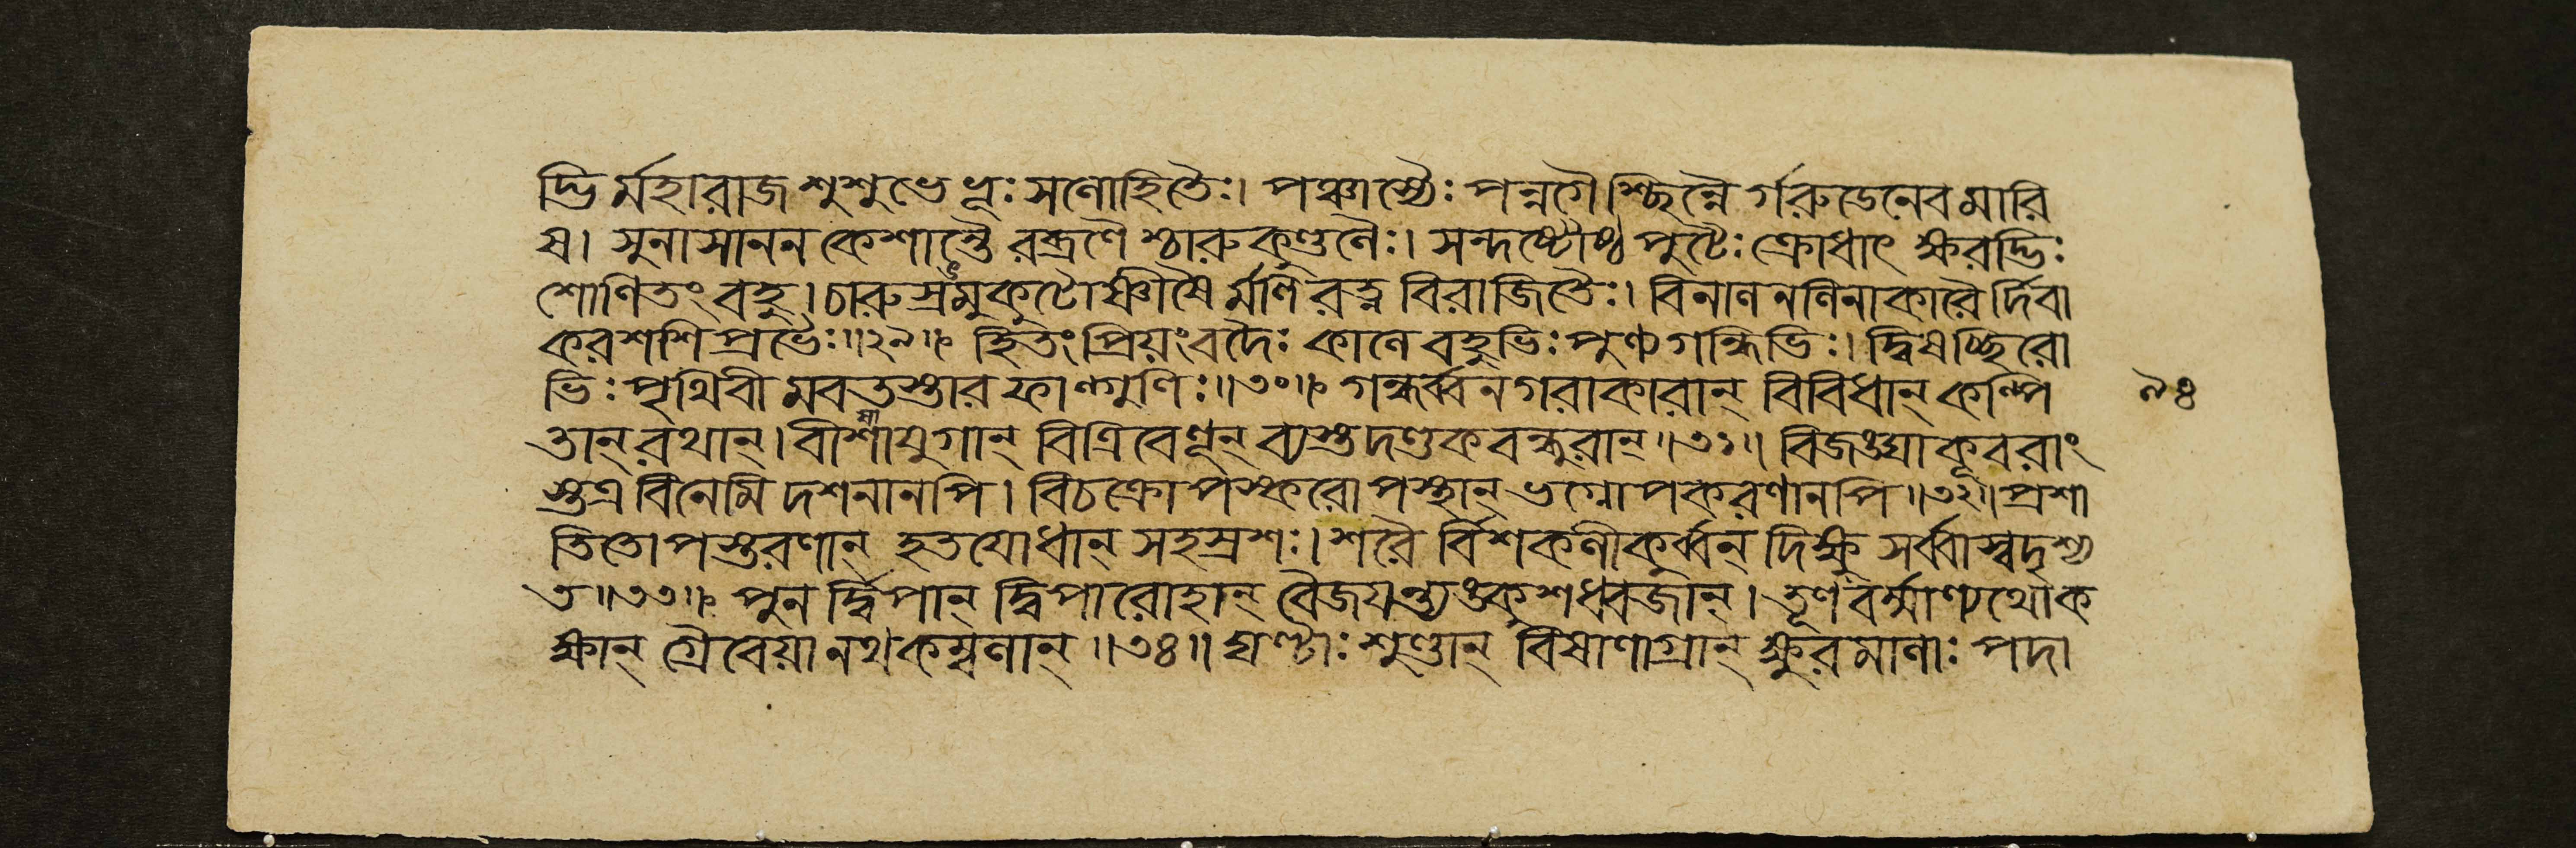 দ্ভির্মহারাজ শুশুভে ভূঃ সলোহিতৈঃ। পঞ্চাস্যৈঃ পন্নগৈশ্ছিন্নৈর্গরুডেনেব মারি
ষ। সুনাসানন কেশান্তৈরব্রণৈ শ্চারুকুণ্ডলৈঃ। সন্দষ্টৌষ্ঠ পুটৈঃ ক্রোধাৎ ক্ষরদ্ভিঃ
শোণিতং বহু। চারুস্রঙ্মুকুটোষ্ণীষৈর্মণিরত্ন বিরাজিতৈঃ। বিনাল নলিনাকারৈর্দিবা
করশশি প্রভৈঃ॥২৯॥ হিতং প্রিয়ংবদৈঃ কালে বহুভিঃ পুণ্য গন্ধিভিঃ। দ্বিষচ্ছিরো
ভিঃ পৃথিবী মবতস্তার ফাল্গুণিঃ॥৩০॥ গন্ধর্ব্বনগরাকারান্ বিবিধান্ কল্পি ৯৪
তান্ রথান্। বীশাযুগান্ বিত্রিবেণূন্ ব্যস্তদণ্ডকবন্ধুরান্॥৩১॥ বিজঙ্ঘাকূবরাং
স্তত্র বিনেমি দশনানপি। বিচক্রোপস্করোপস্থান্ ভগ্নোপকরণানপি॥৩২॥ প্রশা
তিতোপস্তরণান্ হতযোধান্ সহস্রশঃ। শরৈ র্বিশকলীকুর্ব্বন্ দিক্ষু সর্ব্বাস্বদৃশ্য
ত॥৩৩॥ পুন র্দ্বিপান্ দ্বিপারোহান্ বৈজয়ন্ত্যঙ্কুশধ্বজান্। তূণবর্ম্মাণ্যথো ক
ক্ষান্ গ্রৈবেয়ানথকম্বলান্॥৩৪॥ ঘণ্টাঃ শুণ্ডান্ বিষাণাগ্রান্ ক্ষুরমালাঃ পদা